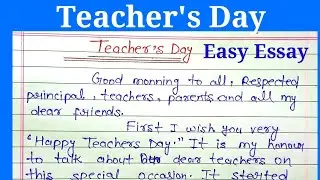 Teacher's Day
Teacher's Day Easy Essay
Good morning to all, Respected
principal, teachers, parents and all my
dear friends.
First I wish you very
"Happy Teachers Day." It is my honour
to talk about dear teachers on
this special occasion. It started